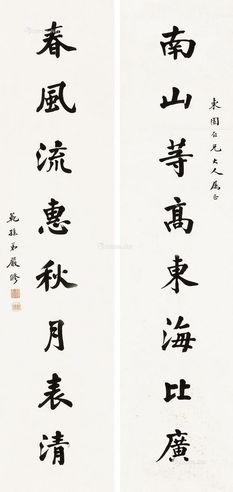 南山等高東海比廣
東園仁兄大人屬正
春風流惠秋月表清
範孫弟嚴修